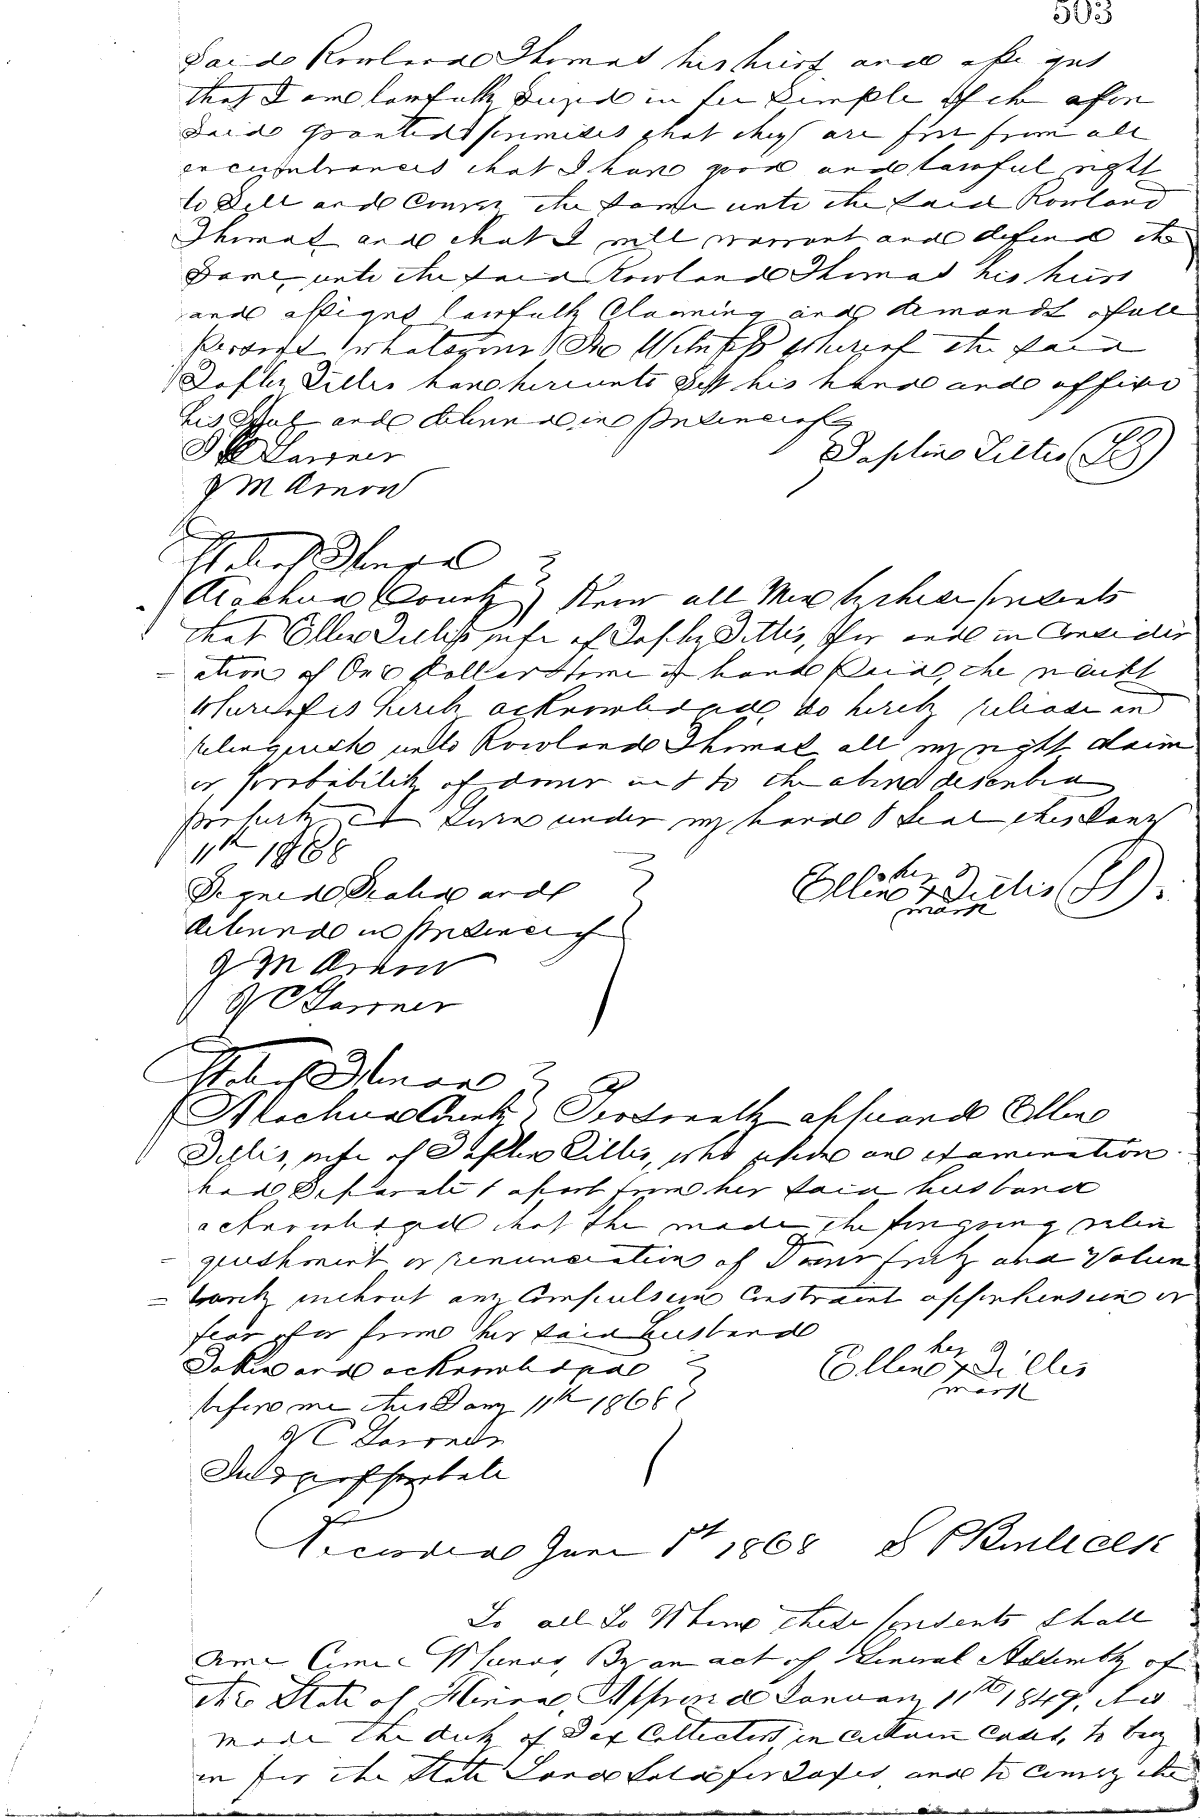 503
Said Rowland Thomas his heirs and assigns
that I am lawfully Seized in fee Simple of the afore
Said granted premises that they are free from all
encumbrances that I have good and lawful right
to Sell and Convey the Same unto the Said Rowland
Thomas and that I will warrant and defend the
Same, unto the Said Rowland Thomas his heirs
and assigns lawfully Claiming and demands of all
persons whatsoever In Witness Whereof the Said
Tillis have hereunto Set his hand and affixed
his Seal and delivered in presence of
Tillis (LS)
J M Arnow
State of Florida
Alachua County } Know all Men by these presents
that Ellen Tillis wife of Tillis, for and in Consider
ation of One Dollar to me in hand paid, the receipt
whereof is hereby acknowledged, do hereby release and
relinquish unto Rowland Thomas all my right Claim
or probability of dower in & to the above described
property Given under my hand & Seal this Jany
11th 1868
Signed Sealed and }
delivered in presence of
Ellen her x mark Tillis (LS)
J M Arnow
State of Florida }
Alachua County } Personally appeared Ellen
Tillis, wife of Tillis, who upon an examination
had Separate & apart from her Said husband
acknowledged that She made the foregoing relin
quishment or renunciation of Dower freely and Volun
tarily without any Compulsion Constraint apprehension or
fear of or from her Said husband
Taken and acknowledged }
before me this Jany 11th 1868 }
Ellen her x mark Tillis
Judge of probate
Recorded June 1st 1868
To all To Whom these presents Shall
Come Whereas, By an act of General Assembly of
the State of Florida, Approved January 11th 1849, it is
made the duty of Tax Collectors, in certain cases, to buy
in for the State Land Sold for Taxes, and to convey the